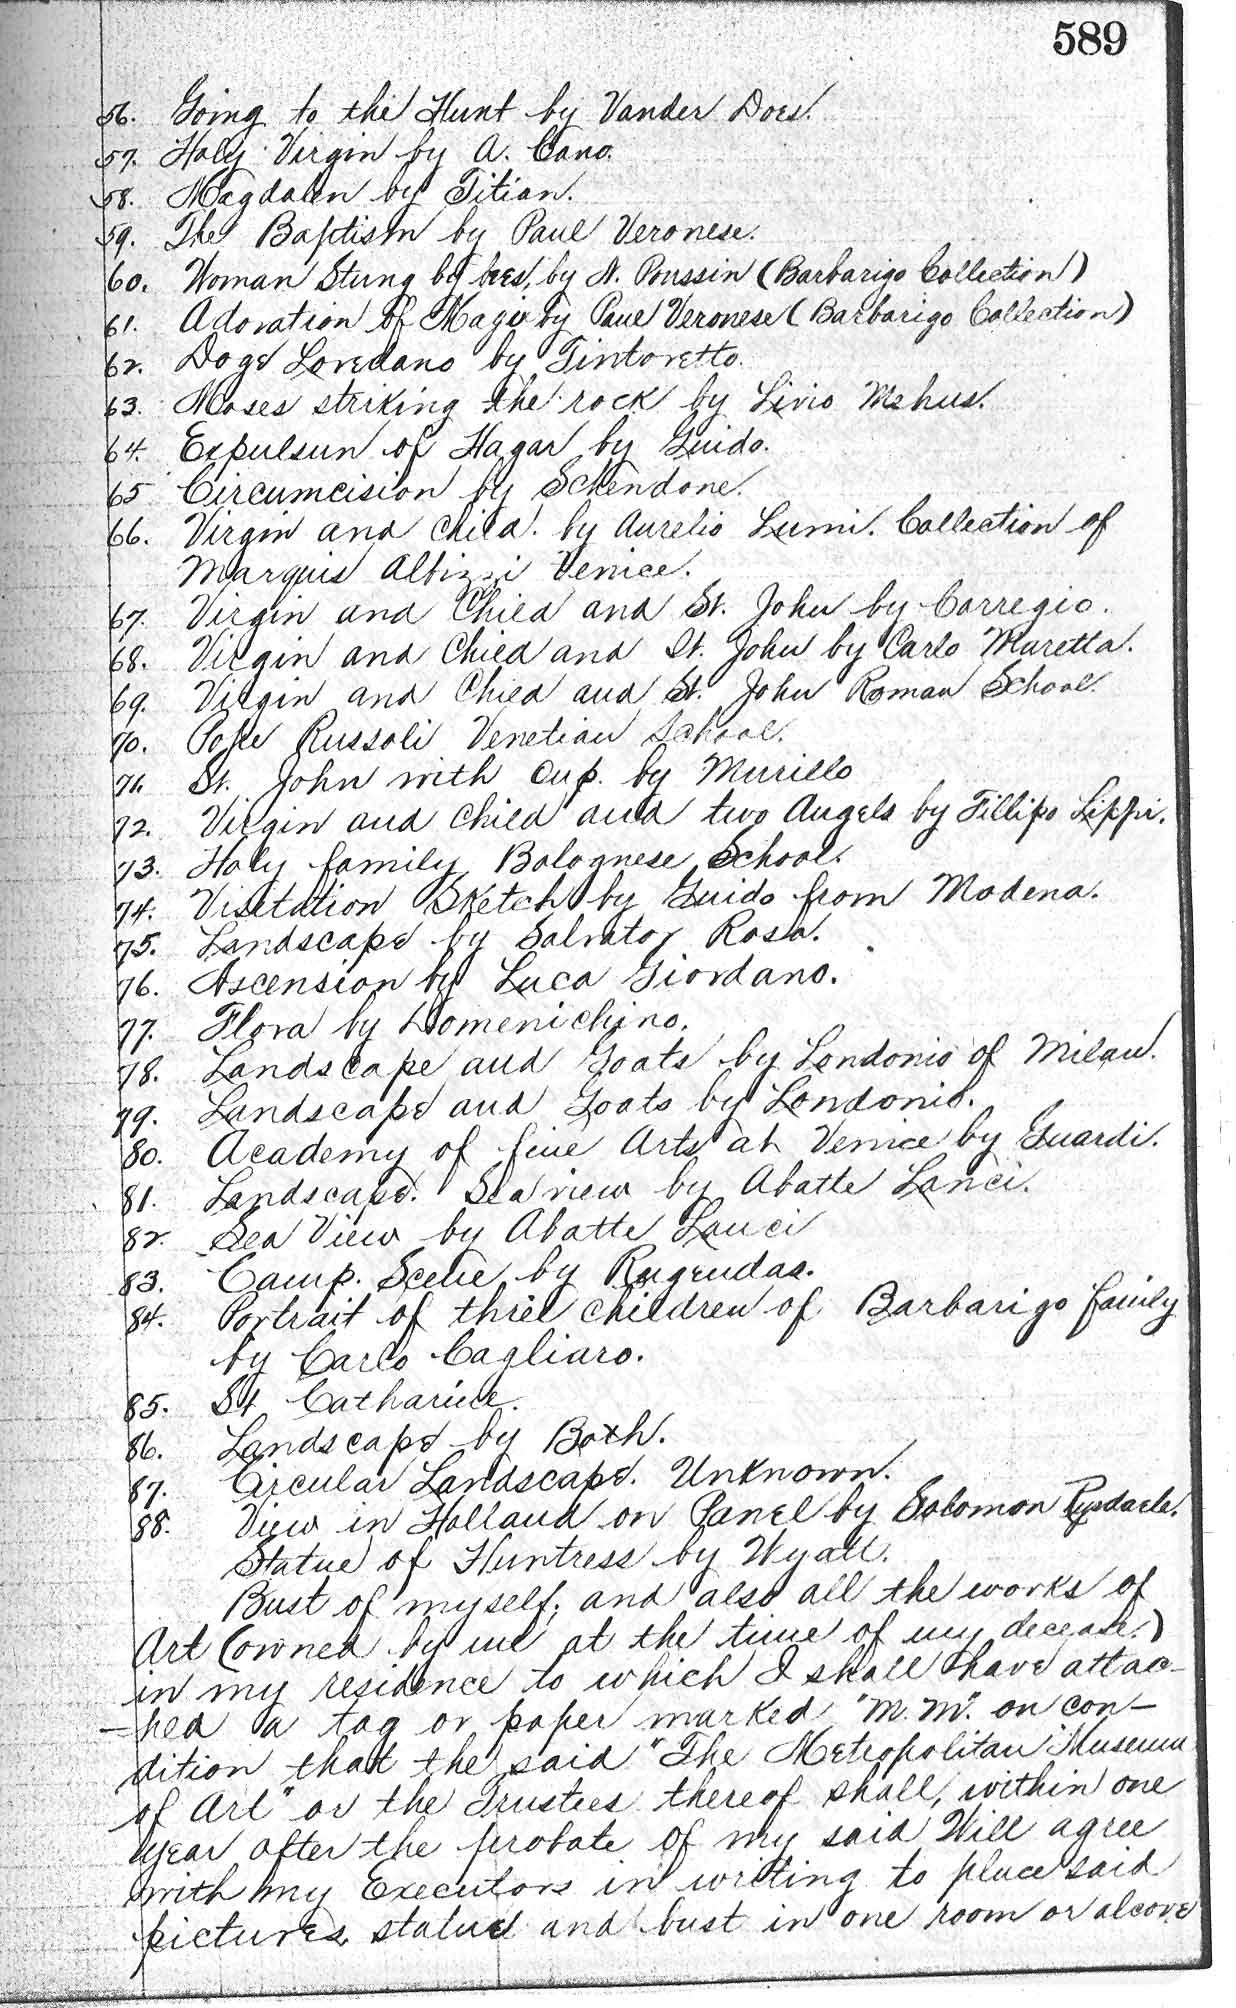 589
56. Going to the Hunt by Vander Does.
57. Holy Virgin by A. Cano.
58. Magdalen by Titian.
59. The Baptism by Paul Veronese.
60. Woman Stung by bees, by N. Poussin (Barbarigo Collection)
61. Adoration of Magi by Paul Veronese (Barbarigo Collection)
62. Doge Loredano by Tintoretto.
63. Moses striking the rock by Livio Mehus.
64. Expulsun of Hagar by Guido.
65 Circumcision by Schendone.
66. Virgin and Child. by Aurelio Lumi. Collection of
Marquis Albizzi Venice.
67. Virgin and Child and St. John by Corregio.
68. Virgin and Child and St. John by Carlo Muretta.
69. Virgin and Child and St. John Roman School.
70. Pope Russoli Venetian School.
71. St. John with Cup. by Murillo
72. Virgin and Child and two Angels by Fillipo Lippi.
73. Holy family Bolognese School.
74. Visitation Sketch by Guido from Modena.
75. Landscape by Salvator Rosa.
76. Ascension by Luca Giordano.
77. Flora by Domenichino.
78. Landscape and Goats by Londonio of Milan.
79. Landscape and Goats by Londonio.
80. Academy of fine Arts at Venice by Guardi.
81. Landscape. Sea view by Abatte Lanci.
82. Sea View by Abatte Lanci
83. Camp. Scene by Rugendas.
84. Portrait of three children of Barbarigo family
by Carlo Cagliaro.
85. St Catharine.
86. Landscape by Both.
87. Circular Landscape. Unknown.
88. View in Holland on Panel by Solomon Rysdaele.
Statue of Huntress by Wyatt.
Bust of myself; and also all the works of
Art (owned by me at the time of my decease.)
in my residence to which I shall have attac-
-hed a tag or paper marked "M.M." on con-
dition that the said "The Metropolitan Museum
of Art" or the Trustees thereof shall, within one
year after the probate of my said Will agree
with my Executors in writing to place said
pictures statue and bust in one room or alcove